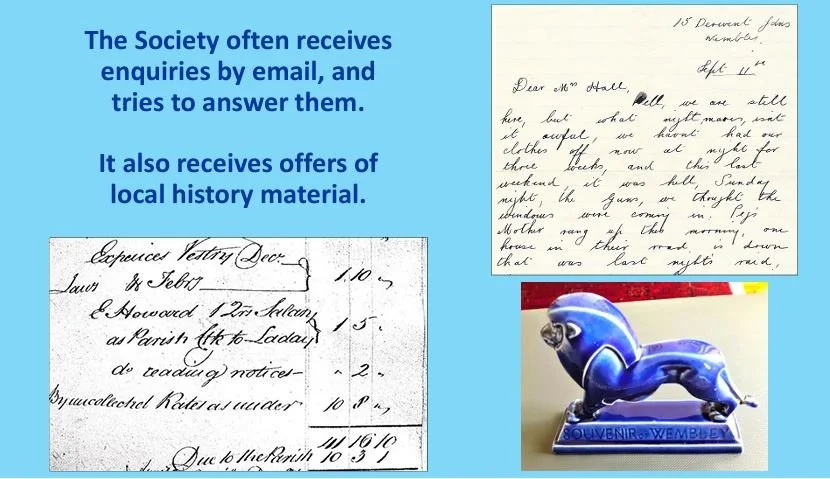 The Society often receives
enquiries by email, and
tries to answer them.
It also receives offers of
local history material.
15 Derwent Gdns
Wembley.
Sept 11th
Dear Mrs Hall,
Well, we are still
here, but what nightmares, isnt
it awful, we havnt had our
clothes off now at night for
three weeks, and this last
weekend it was hell, Sunday
night, the guns, we thought the
windows were coming in. Peg's
Mother rang up this morning, one
house in their road is down
that was last night's raid,
Expences Vestry Decr
Janr & Febry 1.10 „
E Howard 1 2rs Salary
as Parish Clk to Laday 1 5 „
do reading notices „ 2 „
By uncollected Rates as under 10 8 „
11 16 10
Due to the Parish 10 3 1
SOUVENIR OF WEMBLEY